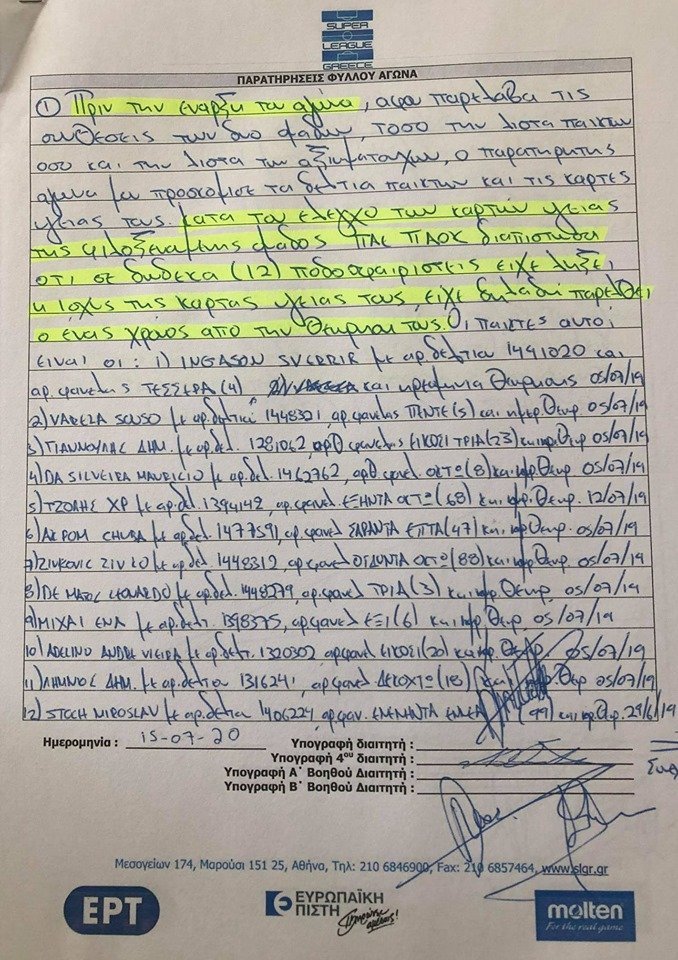 SUPER
LEAGUE
GREECE
ΠΑΡΑΤΗΡΗΣΕΙΣ ΦΥΛΛΟΥ ΑΓΩΝΑ
① Πριν την εναρξη του αγωνα, αφου παρελαβα τις
συνθεσεις των δυο ομαδων, τοσο την λιστα παικτων
οσο και την λιστα των αξιωματουχων, ο παρατηρητης
αγωνα μου προσκομισε τα δελτια παικτων και τις καρτες
υγειας τους. Κατα τον ελεγχο των καρτων υγειας
της φιλοξενουμενης ομαδος ΠΑΕ ΠΑΟΚ διαπιστωθη
οτι σε δωδεκα (12) ποδοσφαιριστεις ειχε ληξει
η ισχυς της καρτας υγειας τους, ειχε δηλαδη παρελθει
ο ενας χρονος απο την θεωρηση τους. Οι παικτες αυτοι
ειναι οι: 1) INGASON SVERRIR με αρ. δελτιου 1491020 και
αρ. φανελας ΤΕΣΣΕΡΑ (4) και ημερομηνια θεωρησης 05/07/19
2) VARELA SOUSO με αρ. δελτιου 1448321, αρ. φανελας ΠΕΝΤΕ (5) και ημερ. θεωρ. 05/07/19
3) ΓΙΑΝΝΟΥΛΑΣ ΔΗΜ. με αρ. δελ. 1281062, αριθ φανελας ΕΙΚΟΣΙ ΤΡΙΑ (23) και ημερ. θεωρ. 05/07/19
4) DA SILVEIRA MAURICIO με αρ. δελ. 1462762, αριθ. φανελ. ΟΚΤΩ (8) και ημερ. θεωρ. 05/07/19
5) ΤΖΟΛΗΣ ΧΡ με αρ. δελτ. 1394142, αρ. φανελ. ΕΞΗΝΤΑ ΟΚΤΩ (68) και ημερ. θεωρ. 12/07/19
6) AKPOM CHUBA με αρ. δελ. 1477591, αρ. φανελ ΣΑΡΑΝΤΑ ΕΠΤΑ (47) και ημερ. θεωρ. 05/07/19
7) ZIVKOVIC ZIVKO με αρ. δελ. 1448312, αρ. φανελ ΟΓΔΟΝΤΑ ΟΚΤΩ (88) και ημερ. θεωρ. 05/07/19
8) DE MATOS LEONARDO με αρ. δελ. 1448279, αρ. φανελ ΤΡΙΑ (3) και ημερ. θεωρ. 05/07/19
9) MIXAI ENA με αρ. δελτ. 1398375, αρ. φανελ ΕΞΙ (6) και ημερ. θεωρ. 05/07/19
10) ADELINO ANDRE VIEIRA με αρ. δελτ. 1320302, αρ. φανελ ΕΙΚΟΣΙ (20) και ημερ. θεωρ. 05/07/19
11) ΛΗΜΝΙΟΣ ΔΗΜ. με αρ. δελτιου 1316241, αρ. φανελ ΔΕΚΟΧΤΩ (18) και ημερ. θεωρ 05/07/19
12) STOCH MIROSLAV με αρ. δελτιου 1406224, αρ. φαν. ΕΝΕΝΗΝΤΑ ΕΝΝΕΑ (99) και ημερ. θεωρ. 29/6/19
Ημερομηνία : 15-07-20 Υπογραφή διαιτητή :
Υπογραφή 4ου διαιτητή :
Υπογραφή Α΄ Βοηθού Διαιτητή :
Υπογραφή Β΄ Βοηθού Διαιτητή :
Μεσογείων 174, Μαρούσι 151 25, Αθήνα, Τηλ: 210 6846900, Fax: 210 6857464, www.slgr.gr
ΕΡΤ
ΕΥΡΩΠΑΪΚΗ
ΠΙΣΤΗ
molten
For the real game